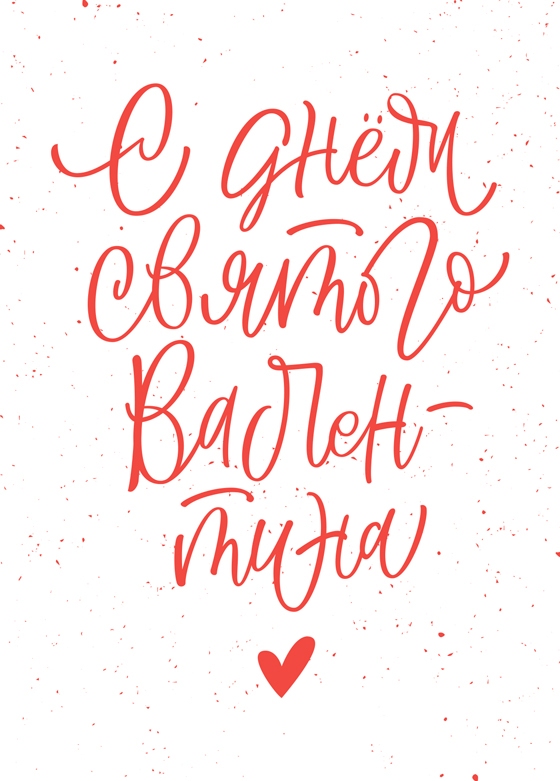 С днём
святого
Вален-
тина